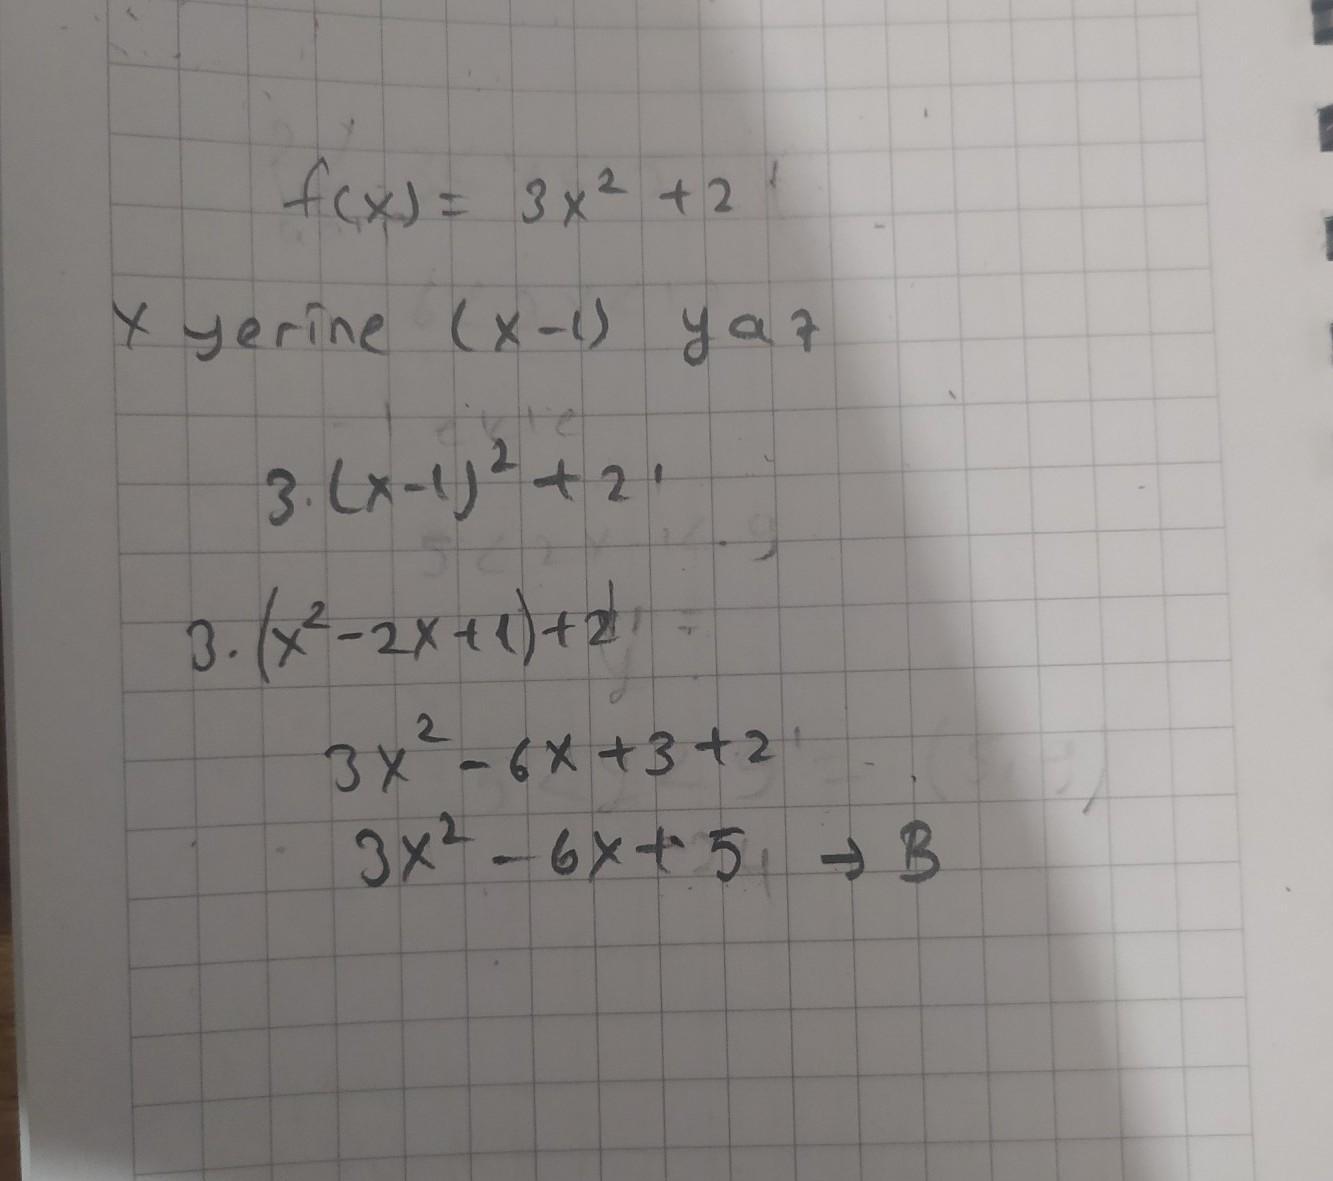 f(x) = 3x² + 2
x yerine (x-1) yaz
3.(x-1)² + 2
3.(x²-2x+1)+2
3x² - 6x + 3 + 2
3x² - 6x + 5 → B